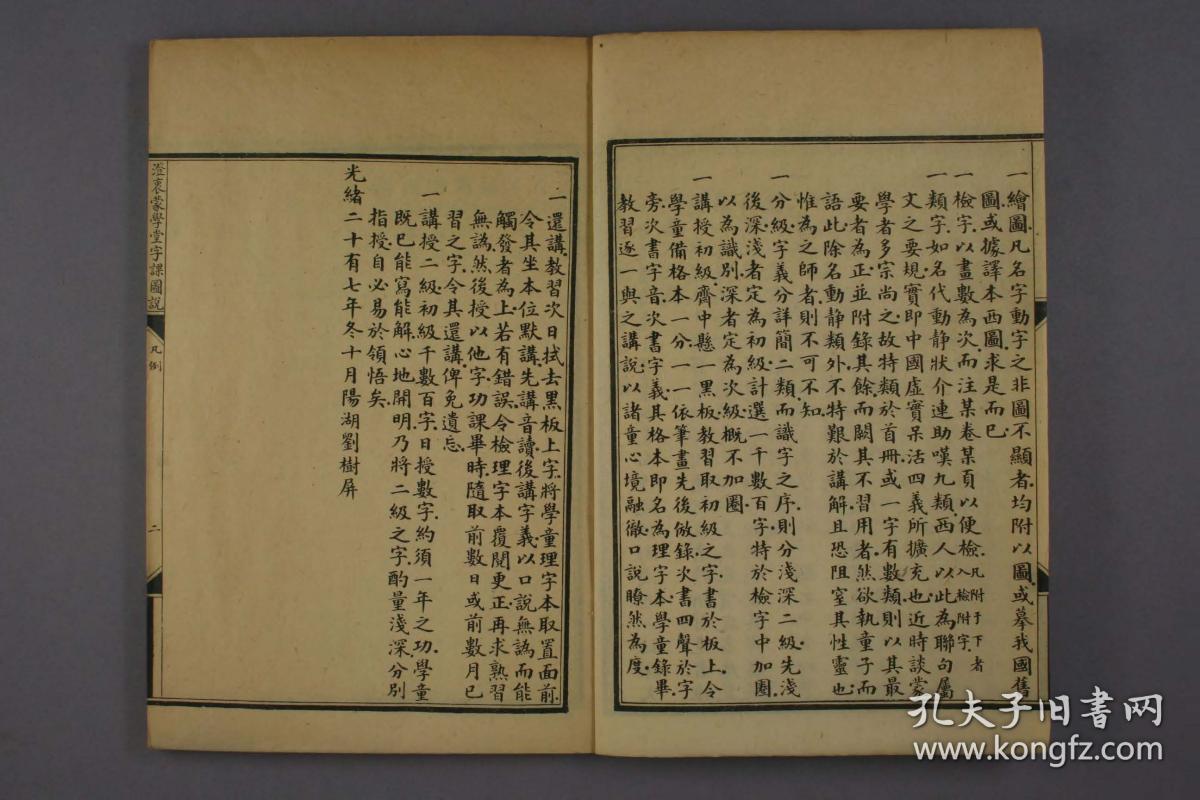 一繪圖凡名字動字之非圖不顯者均附以圖或摹我國舊
圖或據譯本西圖求是而已
一檢字以畫數為次而注某卷某頁以便檢凡附于下者入檢附字
一類字如名代動靜狀介連助嘆九類西人以此為聯句屬
文之要規實即中國虛實呆活四義所擴充也近時談蒙
學者多宗尚之故特類於首冊或一字有數類則以其最
要者為正並附錄其餘而闕其不習用者然欲執童子而
語此除名動靜類外不特艱於講解且恐阻窒其性靈也
惟為之師者則不可不知
一分級字義分詳簡二類而識字之序則分淺深二級先淺
後深淺者定為初級計選一千數百字特於檢字中加圈
以為識別深者定為次級概不加圈
一講授初級齋中縣一黑板教習取初級之字書於板上令
學童備格本一分一一依筆畫先後倣錄次書四聲於字
旁次書字音次書字義其格本即名為理字本學童錄畢
教習逐一與之講說以諸童心境融徹口說瞭然為度
一還講教習次日拭去黑板上字將學童理字本取置面前
令其坐本位默講先講音讀後講字義以口說無譌而能
觸發者為上若有錯誤令檢理字本覆閱更正再求熟習
無譌然後授以他字功課畢時隨取前數日或前數月已
習之字令其還講俾免遺忘
一講授二級初級千數百字日授數字約須一年之功學童
既已能寫能解心地開明乃將二級之字酌量淺深分別
指授自必易於領悟矣
光緒二十有七年冬十月陽湖劉樹屏
澄衷蒙學堂字課圖說
凡例
二
孔夫子旧书网
www.kongfz.com